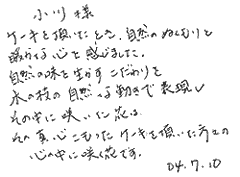 小川様
ケーキを頂いたとき、自然のぬくもりと
暖かな心を感じました。
自然の味を生かすこだわりを
木の枝の自然な動きで表現し
その中に咲いた花は
その真心こもったケーキを頂いた方々の
心の中に咲く花です。
04.7.10